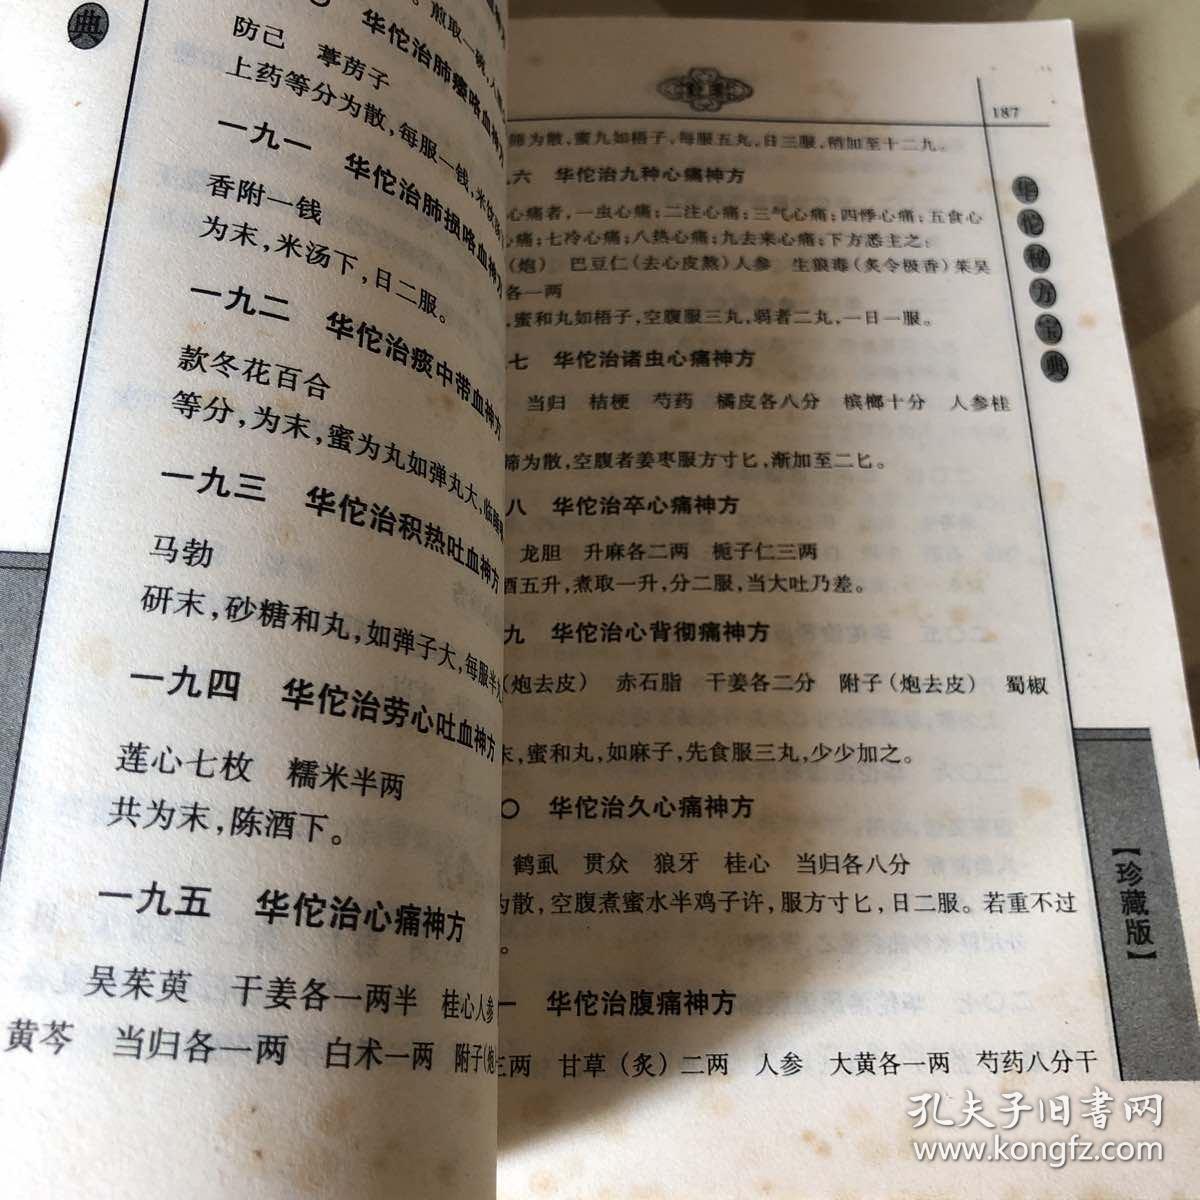 典
〇 华佗治肺痿咯血神方
防己 葶苈子
上药等分为散，每服一钱，米饮
一九一 华佗治肺损咯血神方
香附一钱
为末，米汤下，日二服。
一九二 华佗治痰中带血神方
款冬花百合
等分，为末，蜜为丸如弹丸大，临
一九三 华佗治积热吐血神方
马勃
研末，砂糖和丸，如弹子大，每服半
一九四 华佗治劳心吐血神方
莲心七枚 糯米半两
共为末，陈酒下。
一九五 华佗治心痛神方
吴茱萸 干姜各一两半 桂心人参
黄芩 当归各一两 白术一两 附子(炮
187
筛为散，蜜九如梧子，每服五丸，日三服，稍加至十二九。
六 华佗治九种心痛神方
心痛者，一虫心痛；二注心痛；三气心痛；四悸心痛；五食心
心痛；七冷心痛；八热心痛；九去来心痛；下方悉主之：
(炮) 巴豆仁(去心皮熬)人参 生狼毒(炙令极香)茱吴
各一两
，蜜和丸如梧子，空腹服三丸，弱者二丸，一日一服。
七 华佗治诸虫心痛神方
当归 桔梗 芍药 橘皮各八分 槟榔十分 人参桂
筛为散，空腹者姜枣服方寸匕，渐加至二匕。
八 华佗治卒心痛神方
龙胆 升麻各二两 栀子仁三两
酒五升，煮取一升，分二服，当大吐乃差。
九 华佗治心背彻痛神方
(炮去皮) 赤石脂 干姜各二分 附子(炮去皮) 蜀椒
末，蜜和丸，如麻子，先食服三丸，少少加之。
〇 华佗治久心痛神方
鹤虱 贯众 狼牙 桂心 当归各八分
为散，空腹煮蜜水半鸡子许，服方寸匕，日二服。若重不过
。
一 华佗治腹痛神方
三两 甘草(炙)二两 人参 大黄各一两 芍药八分干
华佗秘方宝典
【珍藏版】
孔夫子旧书网
www.kongfz.com